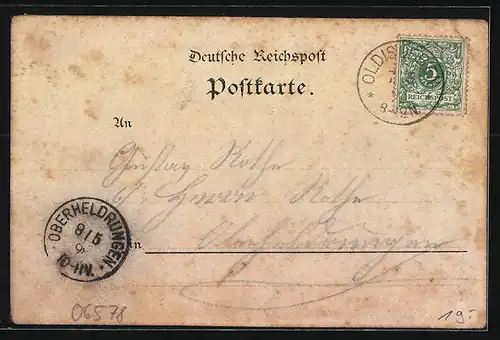 Deutsche Reichspost
Postkarte.
OLDIS
5
REICHSPOST
8-12N.
An
Gustav Rothe
Herrn Rothe
in Oberheldrungen
OBERHELDRUNGEN
8/5
10-11V.
06578
19.-